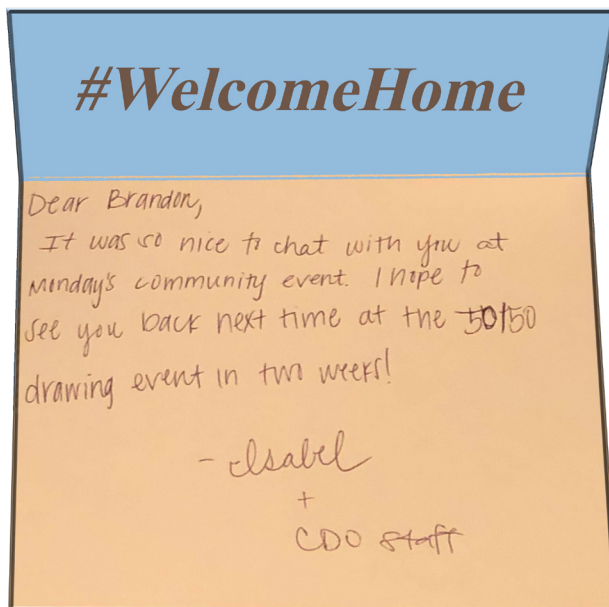 #WelcomeHome
Dear Brandon,
It was so nice to chat with you at
Monday's community event. I hope to
see you back next time at the 50/50
drawing event in two weeks!
- Isabel
+
CDO staff